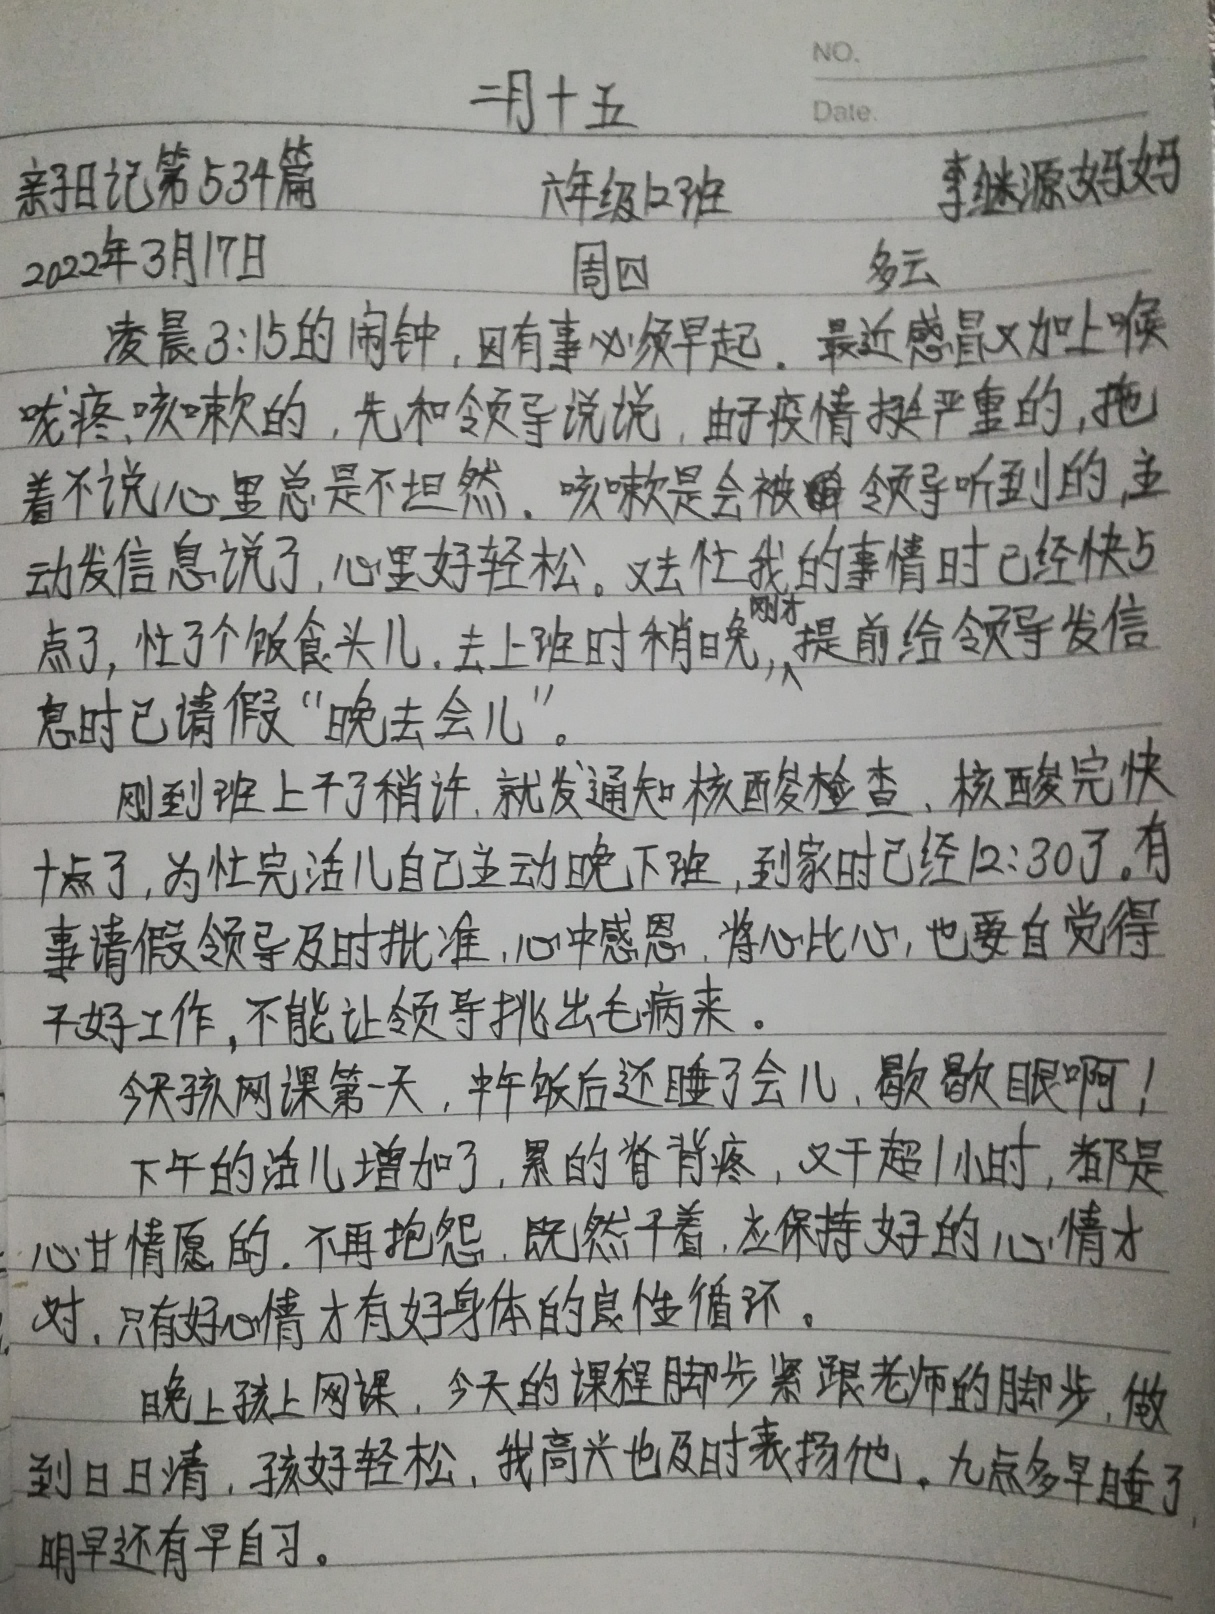 NO.
二月十五
Date.
亲子日记第534篇 六年级12班 李继源妈妈
2022年3月17日 周四 多云
凌晨3:15的闹钟,因有事必须早起。最近感冒又加上喉
咙疼、咳嗽的,先和领导说说,由于疫情挺严重的,拖
着不说心里总是不坦然。咳嗽是会被领导听到的,主
动发信息说了,心里好轻松。又去忙我的事情时已经快5
点了,忙了个饭食头儿。去上班时稍晚,刚才提前给领导发信
息时已请假“晚去会儿”。
刚到班上干了稍许,就发通知核酸检查,核酸完快
十点了,为忙完活儿自己主动晚下班,到家时已经12:30了。有
事请假领导及时批准,心中感恩,将心比心,也要自觉得
干好工作,不能让领导挑出毛病来。
今天孩网课第一天,中午饭后还睡了会儿,歇歇眼啊!
下午的活儿增加了,累的脊背疼,又干超1小时,都是
心甘情愿的。不再抱怨,既然干着,应保持好的心情才
对,只有好心情才有好身体的良性循环。
晚上孩上网课,今天的课程脚步紧跟老师的脚步,做
到日日清,孩好轻松,我高兴也及时表扬他。九点多早睡了,
明早还有早自习。